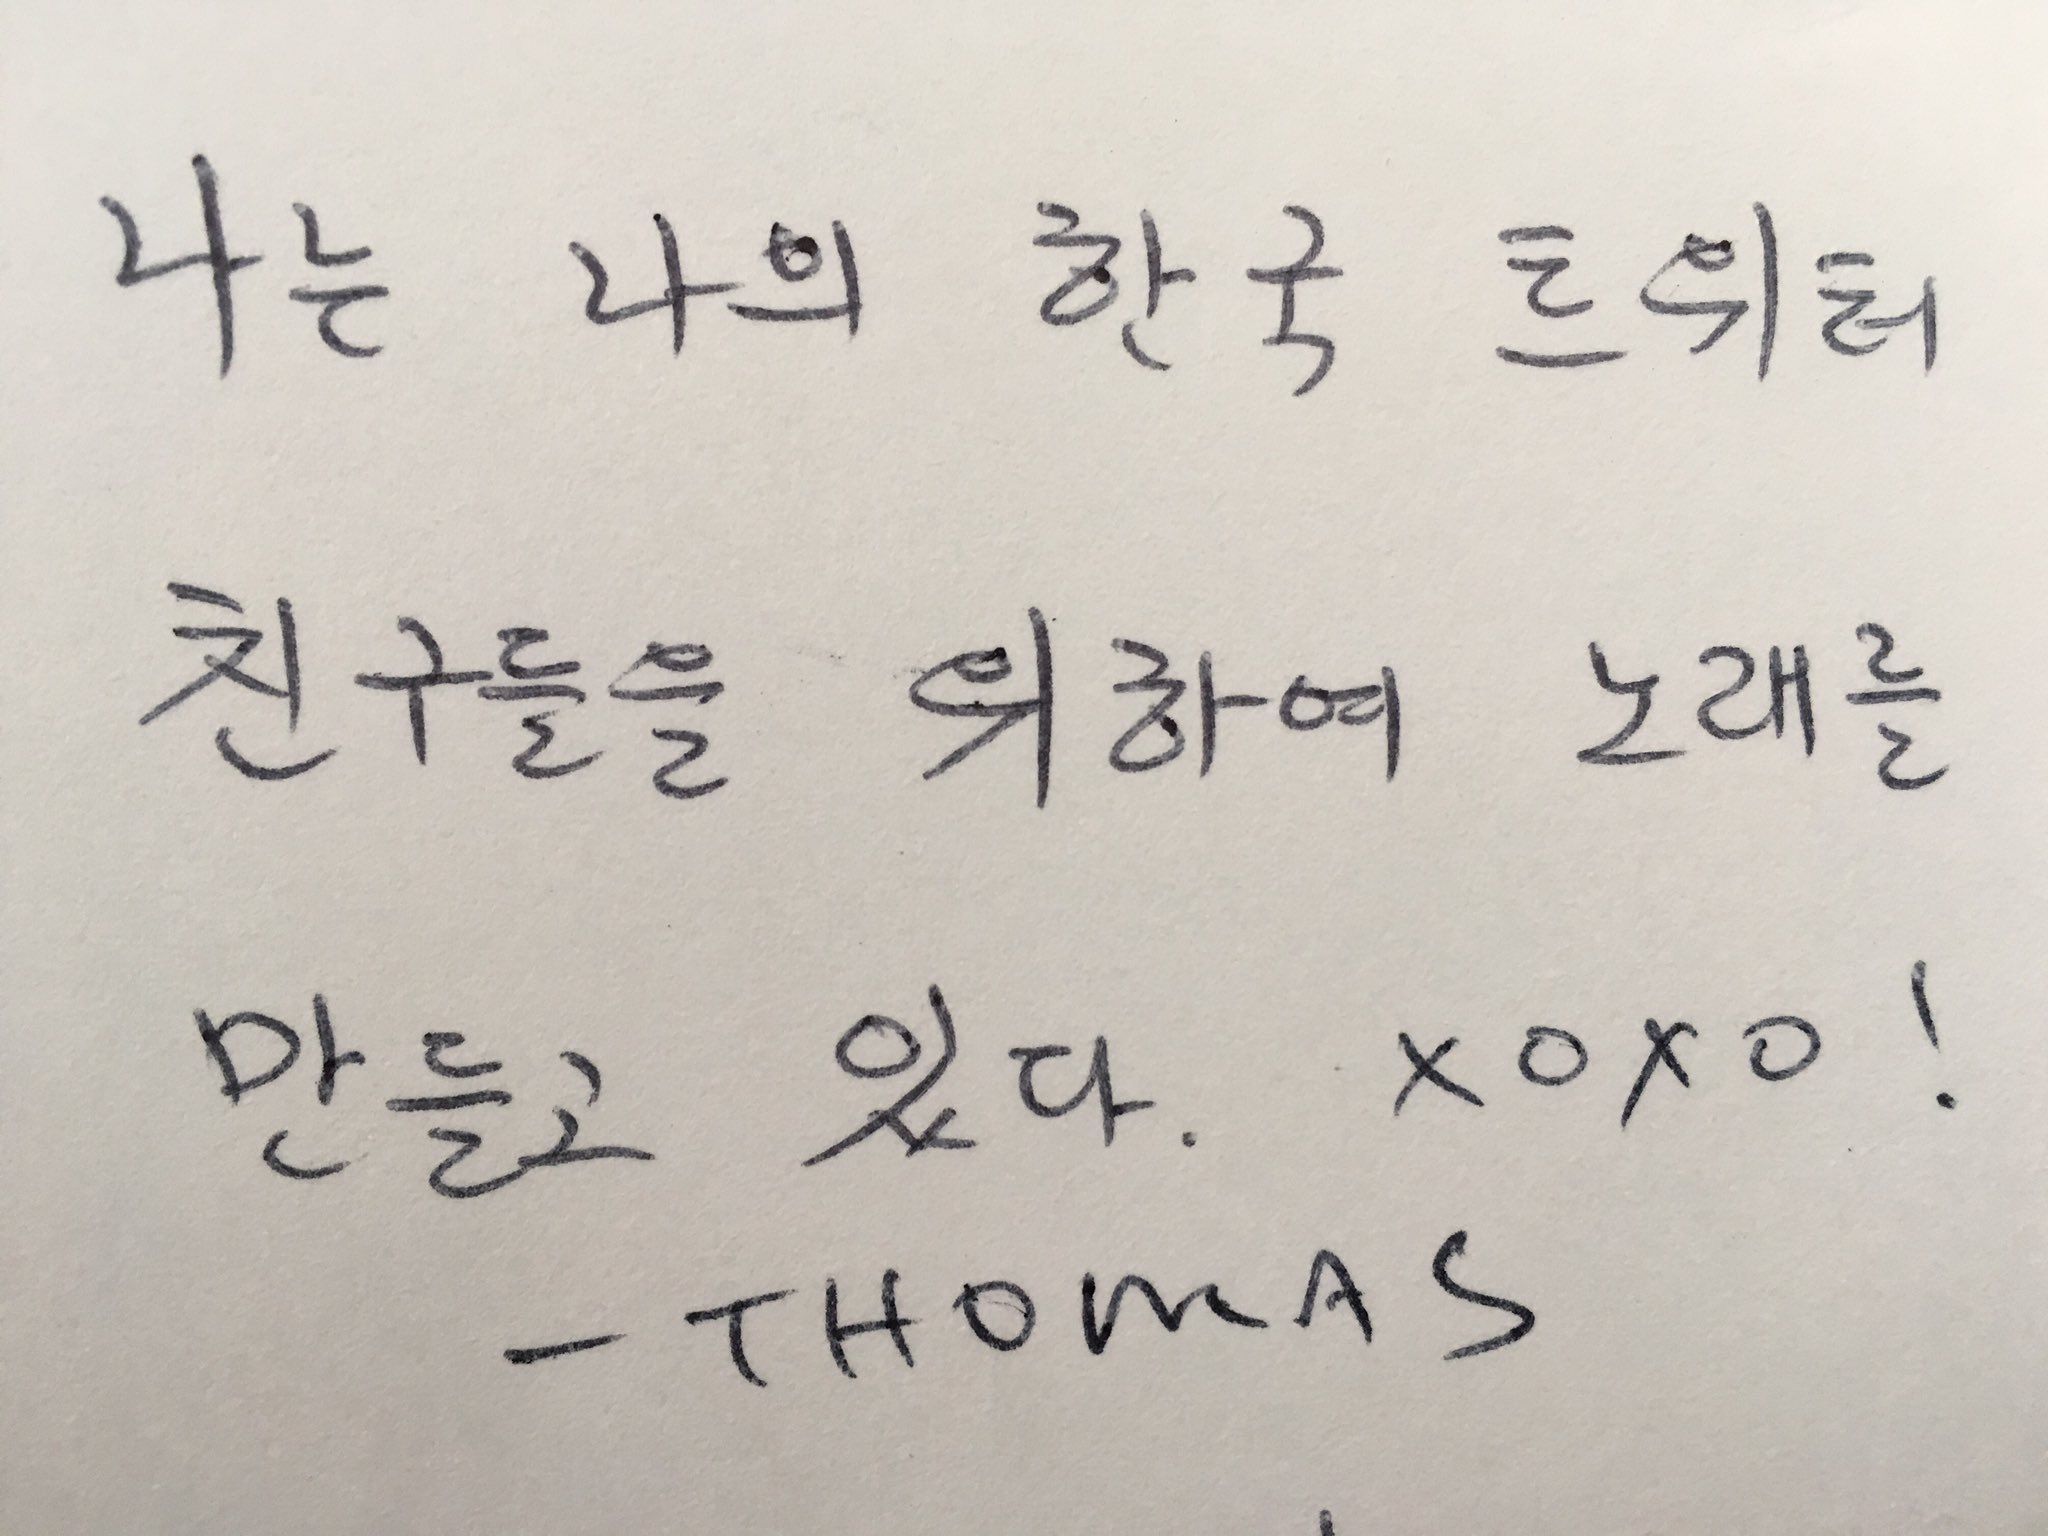 나는 나의 한국 트위터
친구들을 위하여 노래를
만들고 있다. XOXO!
- THOMAS